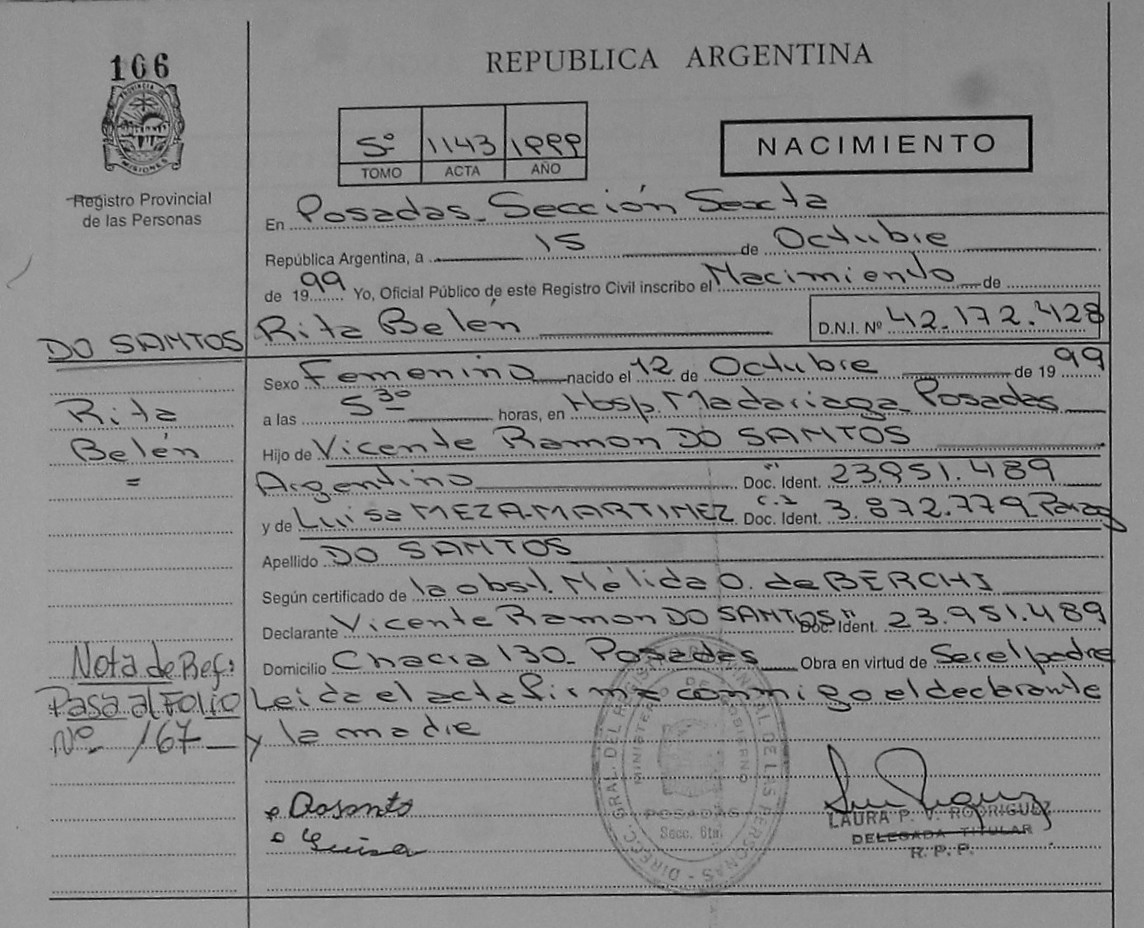 106
REPUBLICA ARGENTINA
5º 1143 1999
TOMO ACTA AÑO
NACIMIENTO
PROVINCIA DE MISIONES
Registro Provincial
de las Personas
En Posadas - Sección Sexta
República Argentina, a 15 de Octubre
de 1999 Yo, Oficial Público de este Registro Civil inscribo el Nacimiento de
DO SANTOS Rita Belén D.N.I. Nº 42.172.428
Sexo Femenino nacido el 12 de Octubre de 1999
Rita
a las 5 30 horas, en Hosp. Madariaga - Posadas
Belén
Hijo de Vicente Ramon DO SANTOS
=
Argentino Doc. Ident. 23.951.489
y de Luisa MEZA-MARTINEZ C.I. Doc. Ident. 3.872.779 Parag
Apellido DO SANTOS
Según certificado de la obst. Nélida O. de BERCHI
Declarante Vicente Ramon DO SANTOS Doc. Ident. 23.951.489
Nota de Ref:
Domicilio Chacra 130 - Posadas Obra en virtud de Ser el padre
Pasa al Folio
Nº 167
Leida el acta firma conmigo el declarante
y la madre
Dosanto
Luisa
DIRECC. GRAL. DEL REGISTRO PROVINCIAL DE LAS PERSONAS
MINISTERIO DE GOBIERNO
POSADAS
Secc. 6ta.
LAURA P. V. RODRIGUEZ
DELEGADA TITULAR
R. P. P.